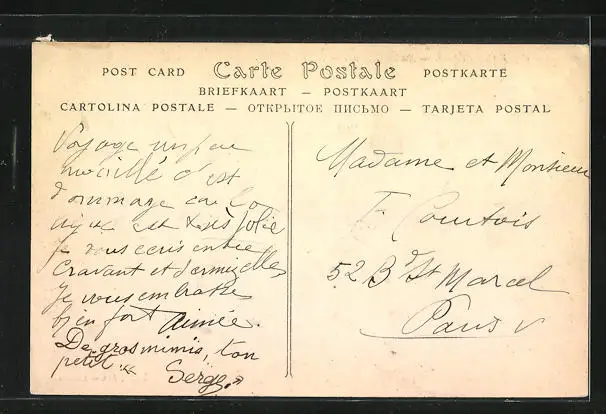 POST CARD Carte Postale POSTKARTE
BRIEFKAART — POSTKAART
CARTOLINA POSTALE — ОТКРЫТОЕ ПИСЬМО — TARJETA POSTAL
Voyage un peu
mouillé c'est
dommage car la
ligne est très jolie
je vous écris entre
Cravant et
Je vous embrasse
bien fort Aimée.
De gros mimis, ton
petit "
Serge."
Madame et Monsieur
F. Courtois
52 Bd St Marcel
Paris V